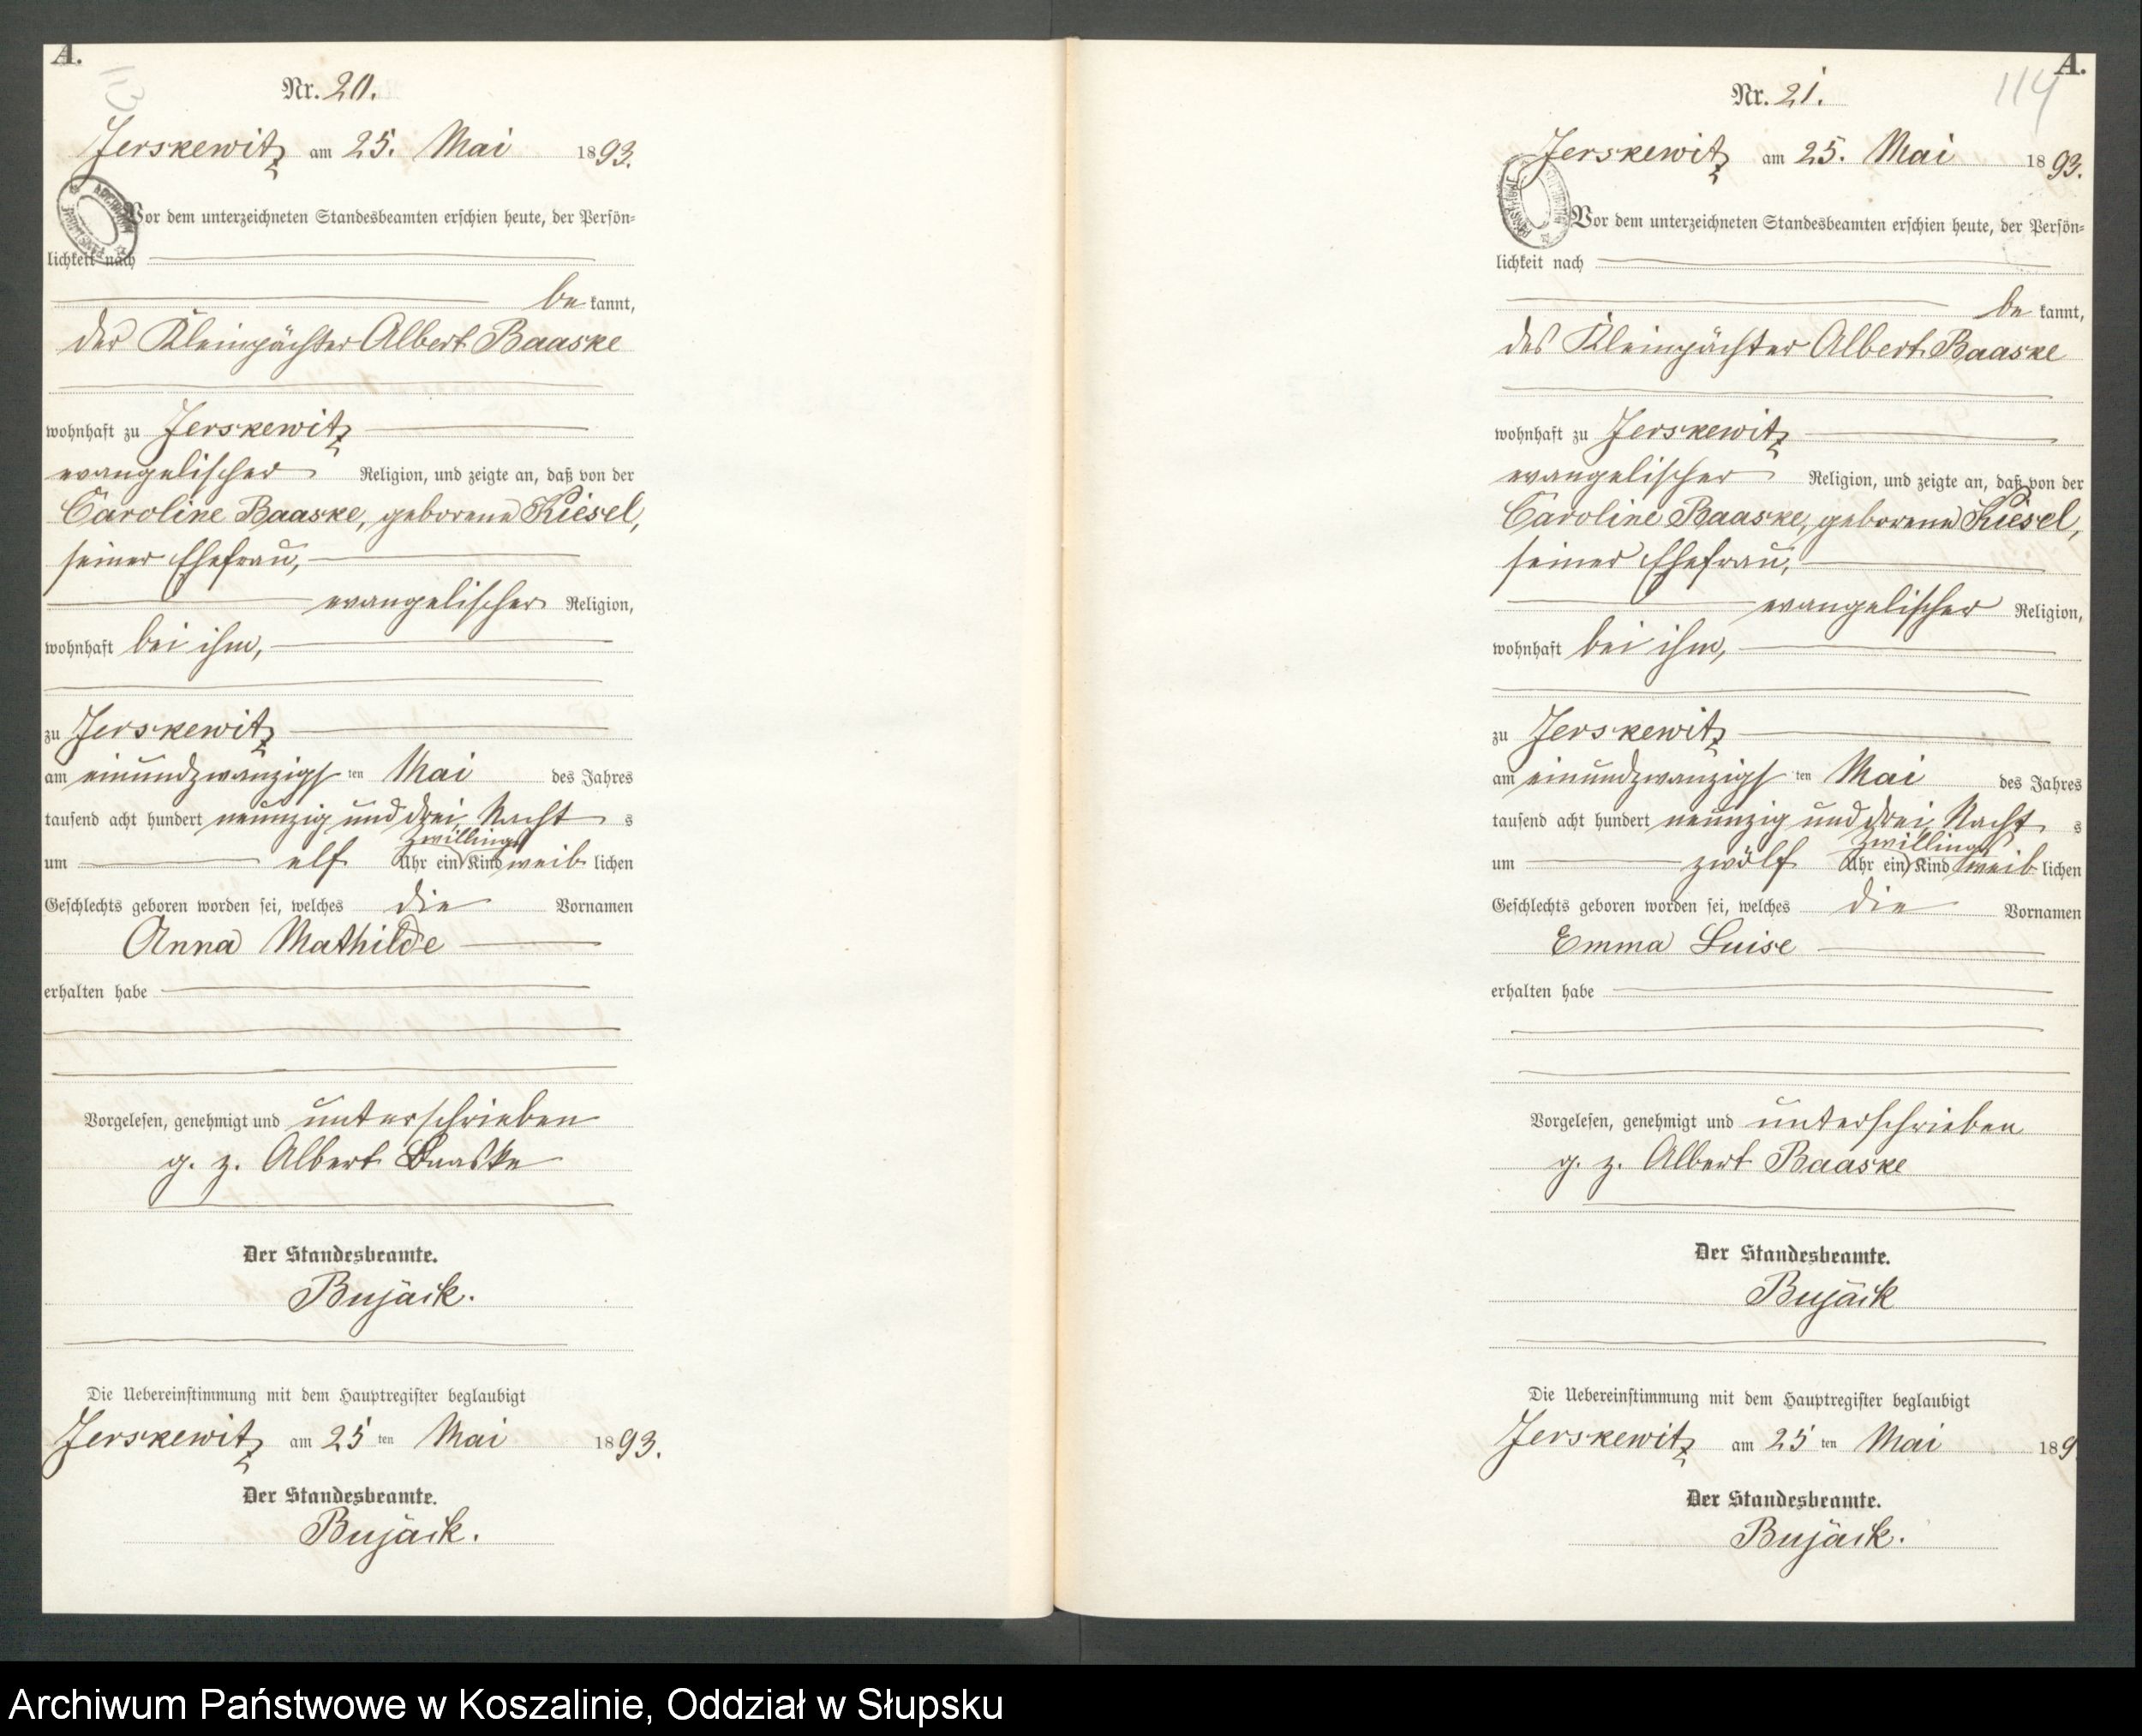 A.
113
Nr. 20.
Jerskewitz am 25. Mai 1893.
Vor dem unterzeichneten Standesbeamten erschien heute, der Persön-
lichkeit nach
be kannt,
der Kleinpächter Albert Baaske
wohnhaft zu Jerskewitz
evangelischer Religion, und zeigte an, daß von der
Caroline Baaske, geborene Kiesel,
seiner Ehefrau,
evangelischer Religion,
wohnhaft bei ihm,
zu Jerskewitz
am einundzwanzigsten Mai des Jahres
tausend acht hundert neunzig und drei Nachts
zwillings
um elf Uhr ein Kind weiblichen
Geschlechts geboren worden sei, welches die Vornamen
Anna Mathilde
erhalten habe
Vorgelesen, genehmigt und unterschrieben
g. z. Albert Baaske
Der Standesbeamte.
Bujack.
Die Uebereinstimmung mit dem Hauptregister beglaubigt
Jerskewitz am 25ten Mai 1893.
Der Standesbeamte.
Bujack.
A.
114
Nr. 21.
Jerskewitz am 25. Mai 1893.
Vor dem unterzeichneten Standesbeamten erschien heute, der Persön-
lichkeit nach
be kannt,
der Kleinpächter Albert Baaske
wohnhaft zu Jerskewitz
evangelischer Religion, und zeigte an, daß von der
Caroline Baaske, geborene Kiesel,
seiner Ehefrau,
evangelischer Religion,
wohnhaft bei ihm,
zu Jerskewitz
am einundzwanzigsten Mai des Jahres
tausend acht hundert neunzig und drei Nachts
zwillings
um zwölf Uhr ein Kind weiblichen
Geschlechts geboren worden sei, welches die Vornamen
Emma Luise
erhalten habe
Vorgelesen, genehmigt und unterschrieben
g. z. Albert Baaske
Der Standesbeamte.
Bujack
Die Uebereinstimmung mit dem Hauptregister beglaubigt
Jerskewitz am 25ten Mai 189
Der Standesbeamte.
Bujack.
Archiwum Państwowe w Koszalinie, Oddział w Słupsku